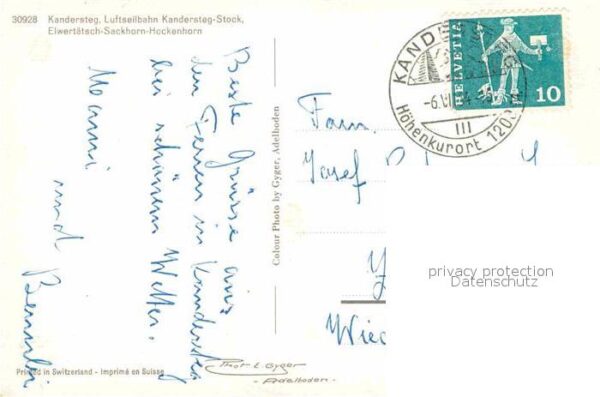 30928 Kandersteg, Luftseilbahn Kandersteg-Stock,
Elwertätsch-Sackhorn-Hockenhorn
Beste Grüsse aus
den Ferien in Kandersteg
bei schönem Wetter.
Mammi
und
Colour Photo by Gyger, Adelboden
HELVETIA
10
KAND
-6.VI.64
III
Höhenkurort 120
Fam.
Josef
privacy protection
Datenschutz
Printed in Switzerland - Imprimé en Suisse
Phot E. Gyger
- Adelboden -